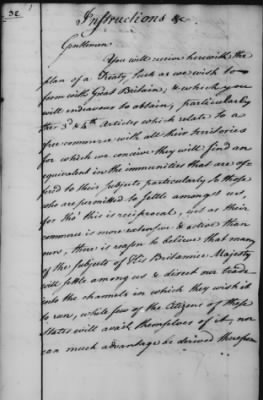 32
Instructions &c
Gentlemen
You will receive herewith the
plan of a Treaty, such as we wish to
form with Great Britain; & which you
will endeavour to obtain, particularly
the 3d & 4th articles which relate to a
free commerce with all their territories
for which we conceive they will find an
equivalent in the immunities that are of-
fered to their subjects particularly to those
who are permitted to settle amongst us,
for tho' this is reciprocal, yet as their
commerce is more extensive & active than
ours, there is reason to believe that many
of the subjects of His Britannic Majesty
will settle among us & direct our trade
into the channels in which they wish it
to run, while few of the Citizens of these
States will avail themselves of it, nor
can much advantage be derived therefrom